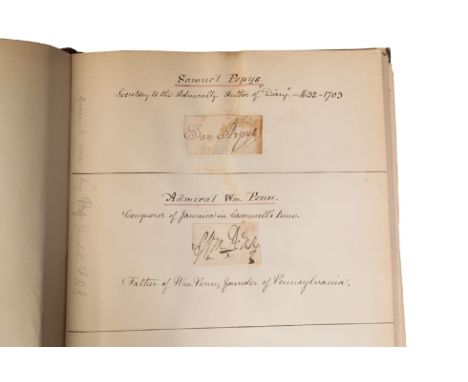 Samuel Pepys.
Secretary to the Admiralty. Author of "Diary" - 1632-1703
Sam Pepys
Admiral Wm Penn.
Conqueror of Jamaica in Cromwell's time.
Father of Wm. Penn, founder of Pennsylvania.